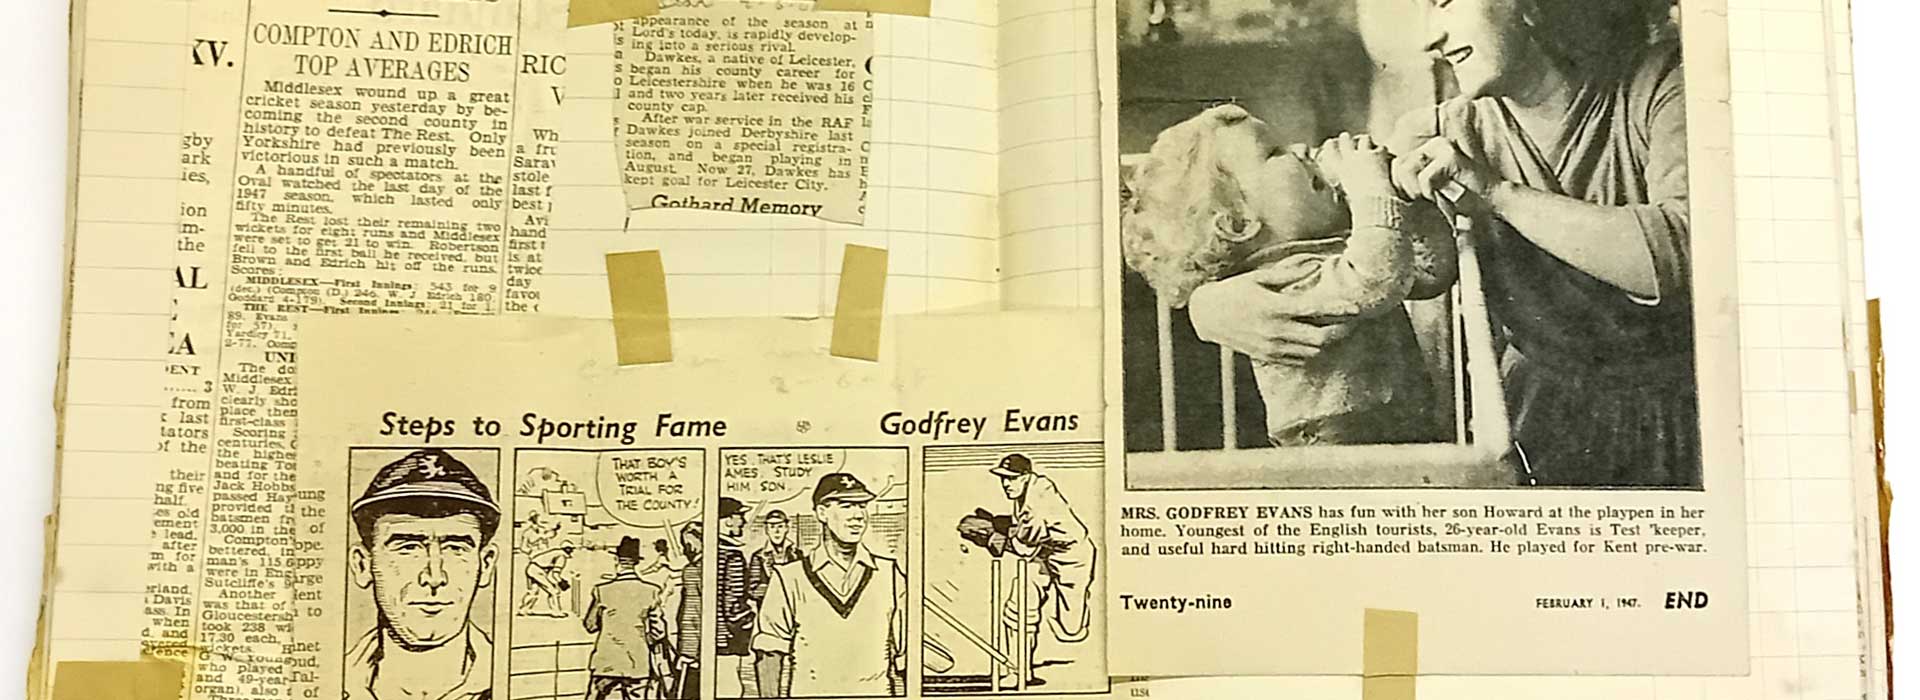 XV.
COMPTON AND EDRICH
TOP AVERAGES
Middlesex wound up a great
cricket season yesterday by be-
coming the second county in
history to defeat The Rest. Only
Yorkshire had previously been
victorious in such a match.
A handful of spectators at the
Oval watched the last day of the
1947 season, which lasted only
fifty minutes.
The Rest lost their remaining two
wickets for eight runs and Middlesex
were set to get 21 to win. Robertson
fell to the first ball he received, but
Brown and Edrich hit off the runs.
Scores:
MIDDLESEX—First Innings: 543 for 9
(dec.) (Compton (D.) 246, W. J. Edrich 180,
Goddard 4-179). Second Innings: 21 for 1.
THE REST—First Innings:
89, Evans
for 57).
Yardley 71,
2-77.
UNI
The do
Middlesex
W. J. Edri
clearly sho
place then
first-class
Scoring
centuries,
the highe
beating To
and for the
Jack Hobbs
passed Hay
provided
batsmen
3,000 in the
Compton
bettered, in
man's 115.6
were in Eng
Sutcliffe's 9
Another
was that of
Gloucestersh
took 238 wi
17.30 each.
wickets.
G. W. Young
who played
and 49-year
organ), also
gby
ark
ies,
ion
m-
the
AL
EA
DENT
3
from
last
tators
of the
their
ng five
half
es old
ement
lead.
after
m for
with a
erland,
Davis
ass. In
when
d. and
RIC
Wh
a fru
Sarav
stole
last f
best
Avi
hand
first t
is at
twice
day
favou
the
appearance of the season at
Lord's today, is rapidly develop-
ing into a serious rival.
Dawkes, a native of Leicester,
began his county career for
Leicestershire when he was 16
and two years later received his
county cap.
After war service in the RAF
Dawkes joined Derbyshire last
season on a special registra-
tion, and began playing in
August. Now 27, Dawkes has
kept goal for Leicester City.
Gothard Memory
Steps to Sporting Fame Godfrey Evans
THAT BOY'S
WORTH A
TRIAL FOR
THE COUNTY!
YES. THAT'S LESLIE
AMES STUDY
HIM SON.
MRS. GODFREY EVANS has fun with her son Howard at the playpen in her
home. Youngest of the English tourists, 26-year-old Evans is Test 'keeper,
and useful hard hitting right-handed batsman. He played for Kent pre-war.
Twenty-nine FEBRUARY 1, 1947. END